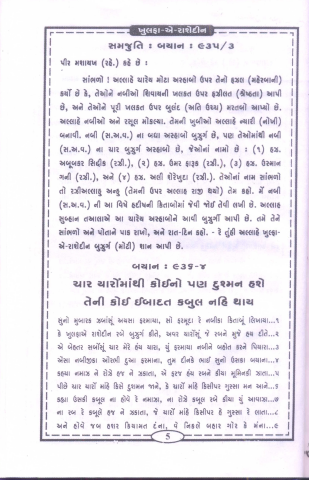 ખુલફા-એ-રાશેદીન
સમજૂતિ : બયાન : ૯૩૫/૩
પીર મશાયખ (રહે.) કહે છે :
સાંભળો ! અલ્લાહે ચારેય મોટા અસ્હાબો ઉપર તેની ફઝલ (મહેરબાની)
કર્યો છે કે, તેઓને નબીઓ સિવાયની ખલકત ઉપર ફઝીલત (શ્રેષ્ઠતા) આપી
છે, અને તેઓને પૂરી ખલકત ઉપર બુલંદ (અતિ ઉચ્ચ) મરતબો આપ્યો છે.
અલ્લાહે નબીઓ અને રસૂલ મોકલ્યા. તેમની ખુબીઓ અલ્લાહે ન્યારી (નોખી)
બનાવી. નબી (સ.અ.વ.) ના બધા અસ્હાબો બુઝુર્ગ છે, પણ તેઓમાંથી નબી
(સ.અ.વ.) ના ચાર બુઝુર્ગ અસ્હાબો છે, જેઓનાં નામો છે : (૧) હઝ.
અબૂબકર સિદ્દીક (રઝી.), (૨) હઝ. ઉમર ફારૂક (રઝી.), (૩) હઝ. ઉસ્માન
ગની (રઝી.), અને (૪) હઝ. અલી શેરેખુદા (રઝી.). તેઓનાં નામ સાંભળો
તો રઝીઅલ્લાહુ અન્હુ (તેમની ઉપર અલ્લાહ રાજી થયો) તેમ કહો. મેં નબી
(સ.અ.વ.) ની આ વિષે હદીષની કિતાબોમાં જેવી જોઈ તેવી લખી છે. અલ્લાહ
સુબ્હાન તઆલાએ આ ચારેય અસ્હાબોને આવી બુઝુર્ગી આપી છે. તમે તેને
સાંભળો અને પોતાને પાક રાખો, અને રાત-દિન કહો. - રે તૂંહી અલ્લાહે ખુલ્ફા-
એ-રાશેદીન બુઝુર્ગ (મોટી) શાન આપી છે.
બયાન : ૯૩૬-૪
ચાર યારોંમાંથી કોઈનો પણ દુશ્મન હશે
તેની કોઈ ઈબાદત કબુલ નહિ થાય
સુનો મુબારક ઝબાંસૂં અયસા ફરમાયા, સો ફરમુદા રે નબીકા કિતાબૂં લિખાયા...૧
કે ખુલફાએ રાશેદીન રબે બુઝુર્ગ કીતે, અવર યારોંસૂં જે રબને મુજે હય દીતે...૨
એ બેહતર સબોંસૂં ચાર મેરે હય યારા, યું ફરમાયા નબીને બહોત કરને પિયારા...૩
એસા નબીજીકા ઓરભી હુઆ ફરમાના, તુમ દીનકે ભાઈ સુનો ઉસકા બયાના...૪
કહ્યા નમાઝ ને રોઝે હજ ને ઝકાતા, એ ફરજ હય રબને કીયા મૂમિનકી ઝાતા...૫
પીછે ચાર યારોં માંહિ કિસે દુશ્મન જાને, કે ચારોં માંહિ કિસીપર ગુસ્સા મન આને...૬
કહ્યા ઉસકી કબૂલ ના હોવે રે નમાઝા, ના રોઝે કબૂલ રબને કીયા યું આવાઝા...૭
ના રબ રે કબૂલે હજ ને ઝકાતા, જે ચારોં માંહિ કિસીપર હે ગુસ્સા રે લાતા...૮
અને હોવે જબ હશર કિયામત દંના, વેં નિકલે બહાર ગોર કે મંના...૯
5